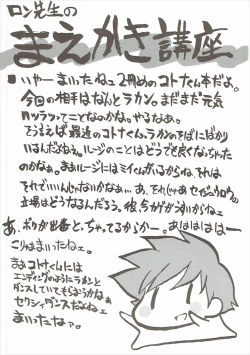 ロン先生の
まえがき講座
■いやーまいったねェ2冊めのコトナくん本だよ。
今回の相手はなんとラカン。まだまだ元気
ってことなのかな。やるなぁ。
そういえば最近のコトナくん、ラカンのそばにばかり
いるんだよねぇ。ルージのことはどうでも良くなっちゃった
のかなぁ。まぁルージにはミィくんがいるからね、それは
それでいいんじゃないかなぁ…あ、それじゃあセイジュウロウの
立場はどうなるんだろう。彼、今カゲがうすいからねェ
あ、ボクが出番とっちゃってるからかー。あはははは
こりゃまいったねェ。
まぁコトナくんには
エンディングのようにラカンと
ダンスしていてもらおうかなぁ
セクシィダンスだよねェ
まいったなァ。